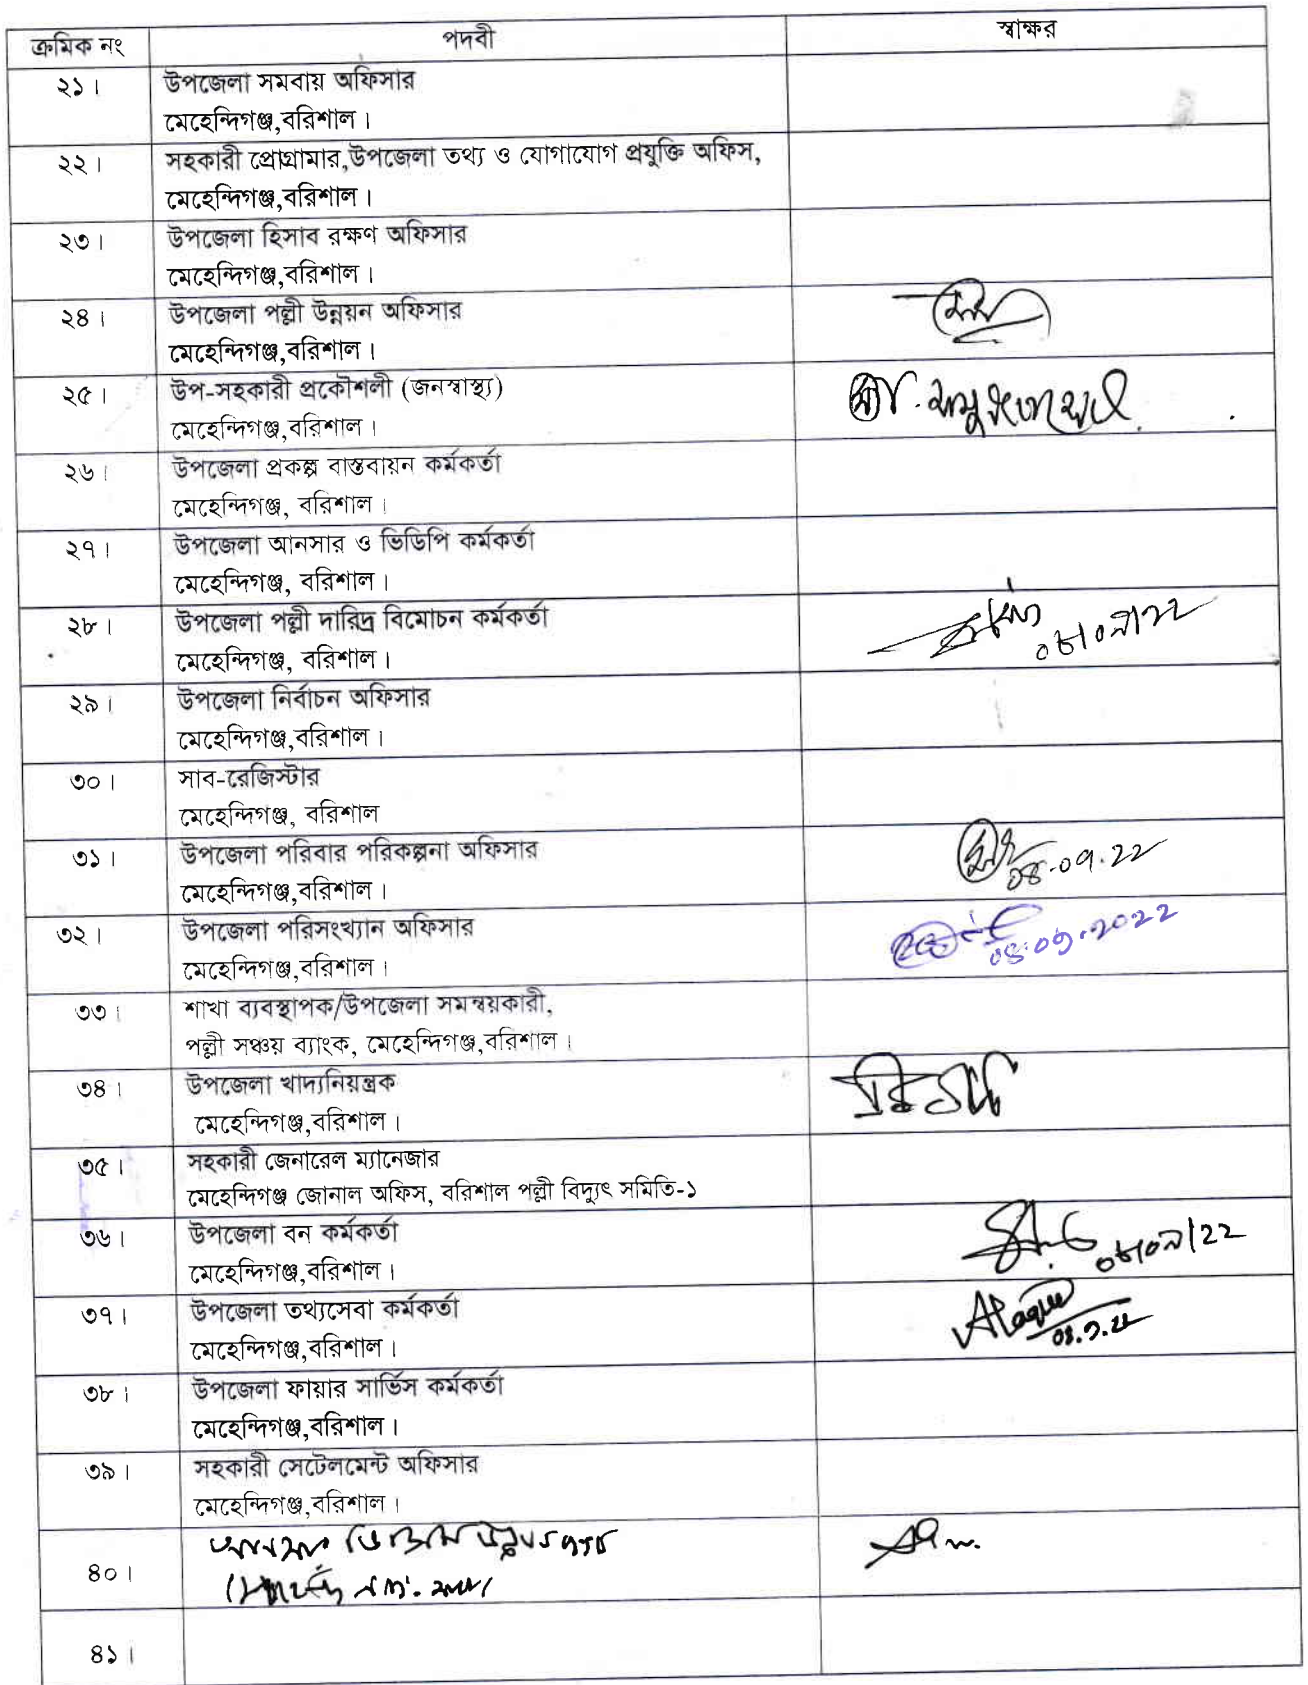 ক্রমিক নং পদবী স্বাক্ষর
২১। উপজেলা সমবায় অফিসার
মেহেন্দিগঞ্জ,বরিশাল।
২২। সহকারী প্রোগ্রামার,উপজেলা তথ্য ও যোগাযোগ প্রযুক্তি অফিস,
মেহেন্দিগঞ্জ,বরিশাল।
২৩। উপজেলা হিসাব রক্ষণ অফিসার
মেহেন্দিগঞ্জ,বরিশাল।
২৪। উপজেলা পল্লী উন্নয়ন অফিসার
মেহেন্দিগঞ্জ,বরিশাল।
২৫। উপ-সহকারী প্রকৌশলী (জনস্বাস্থ্য)
মেহেন্দিগঞ্জ,বরিশাল।
২৬। উপজেলা প্রকল্প বাস্তবায়ন কর্মকর্তা
মেহেন্দিগঞ্জ, বরিশাল।
২৭। উপজেলা আনসার ও ভিডিপি কর্মকর্তা
মেহেন্দিগঞ্জ, বরিশাল।
২৮। উপজেলা পল্লী দারিদ্র বিমোচন কর্মকর্তা
মেহেন্দিগঞ্জ, বরিশাল।
২৯। উপজেলা নির্বাচন অফিসার
মেহেন্দিগঞ্জ,বরিশাল।
৩০। সাব-রেজিস্টার
মেহেন্দিগঞ্জ, বরিশাল
৩১। উপজেলা পরিবার পরিকল্পনা অফিসার
08.09.22
মেহেন্দিগঞ্জ,বরিশাল।
৩২। উপজেলা পরিসংখ্যান অফিসার
08.09.2022
মেহেন্দিগঞ্জ,বরিশাল।
৩৩। শাখা ব্যবস্থাপক/উপজেলা সমন্বয়কারী,
পল্লী সঞ্চয় ব্যাংক, মেহেন্দিগঞ্জ,বরিশাল।
৩৪। উপজেলা খাদ্যনিয়ন্ত্রক
মেহেন্দিগঞ্জ,বরিশাল।
৩৫। সহকারী জেনারেল ম্যানেজার
মেহেন্দিগঞ্জ জোনাল অফিস, বরিশাল পল্লী বিদ্যুৎ সমিতি-১
৩৬। উপজেলা বন কর্মকর্তা
মেহেন্দিগঞ্জ,বরিশাল।
৩৭। উপজেলা তথ্যসেবা কর্মকর্তা
মেহেন্দিগঞ্জ,বরিশাল।
৩৮। উপজেলা ফায়ার সার্ভিস কর্মকর্তা
মেহেন্দিগঞ্জ,বরিশাল।
৩৯। সহকারী সেটেলমেন্ট অফিসার
মেহেন্দিগঞ্জ,বরিশাল।
৪০।
৪১।